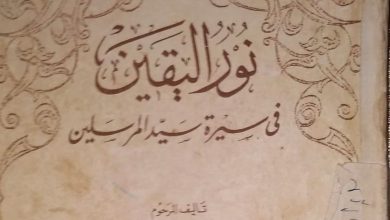 نُورُ اليَقين
في سيرة سيّد المرسلين
تأليف المرحوم